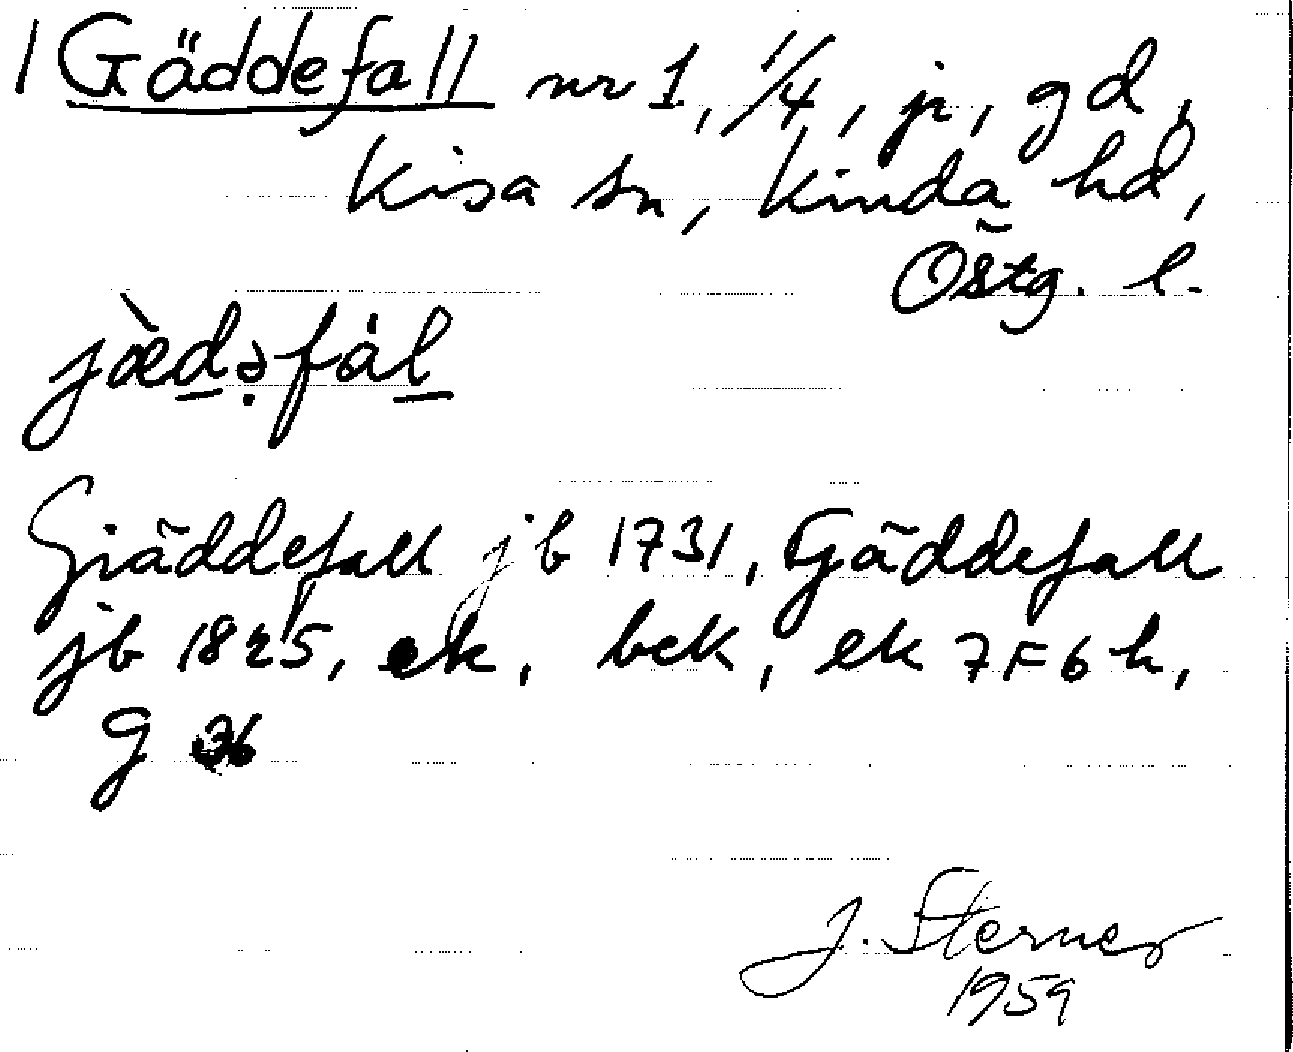 1 Gäddefall nr 1, 1/4, jr, gd,
Kisa sn, Kinda hd,
Östg. l.
jæ̀d̲ə̣fál̲
Giäddefall jb 1731, Gäddefall
jb 1825, ek, bek, ek 7F6h,
g
J. Sterner
1959